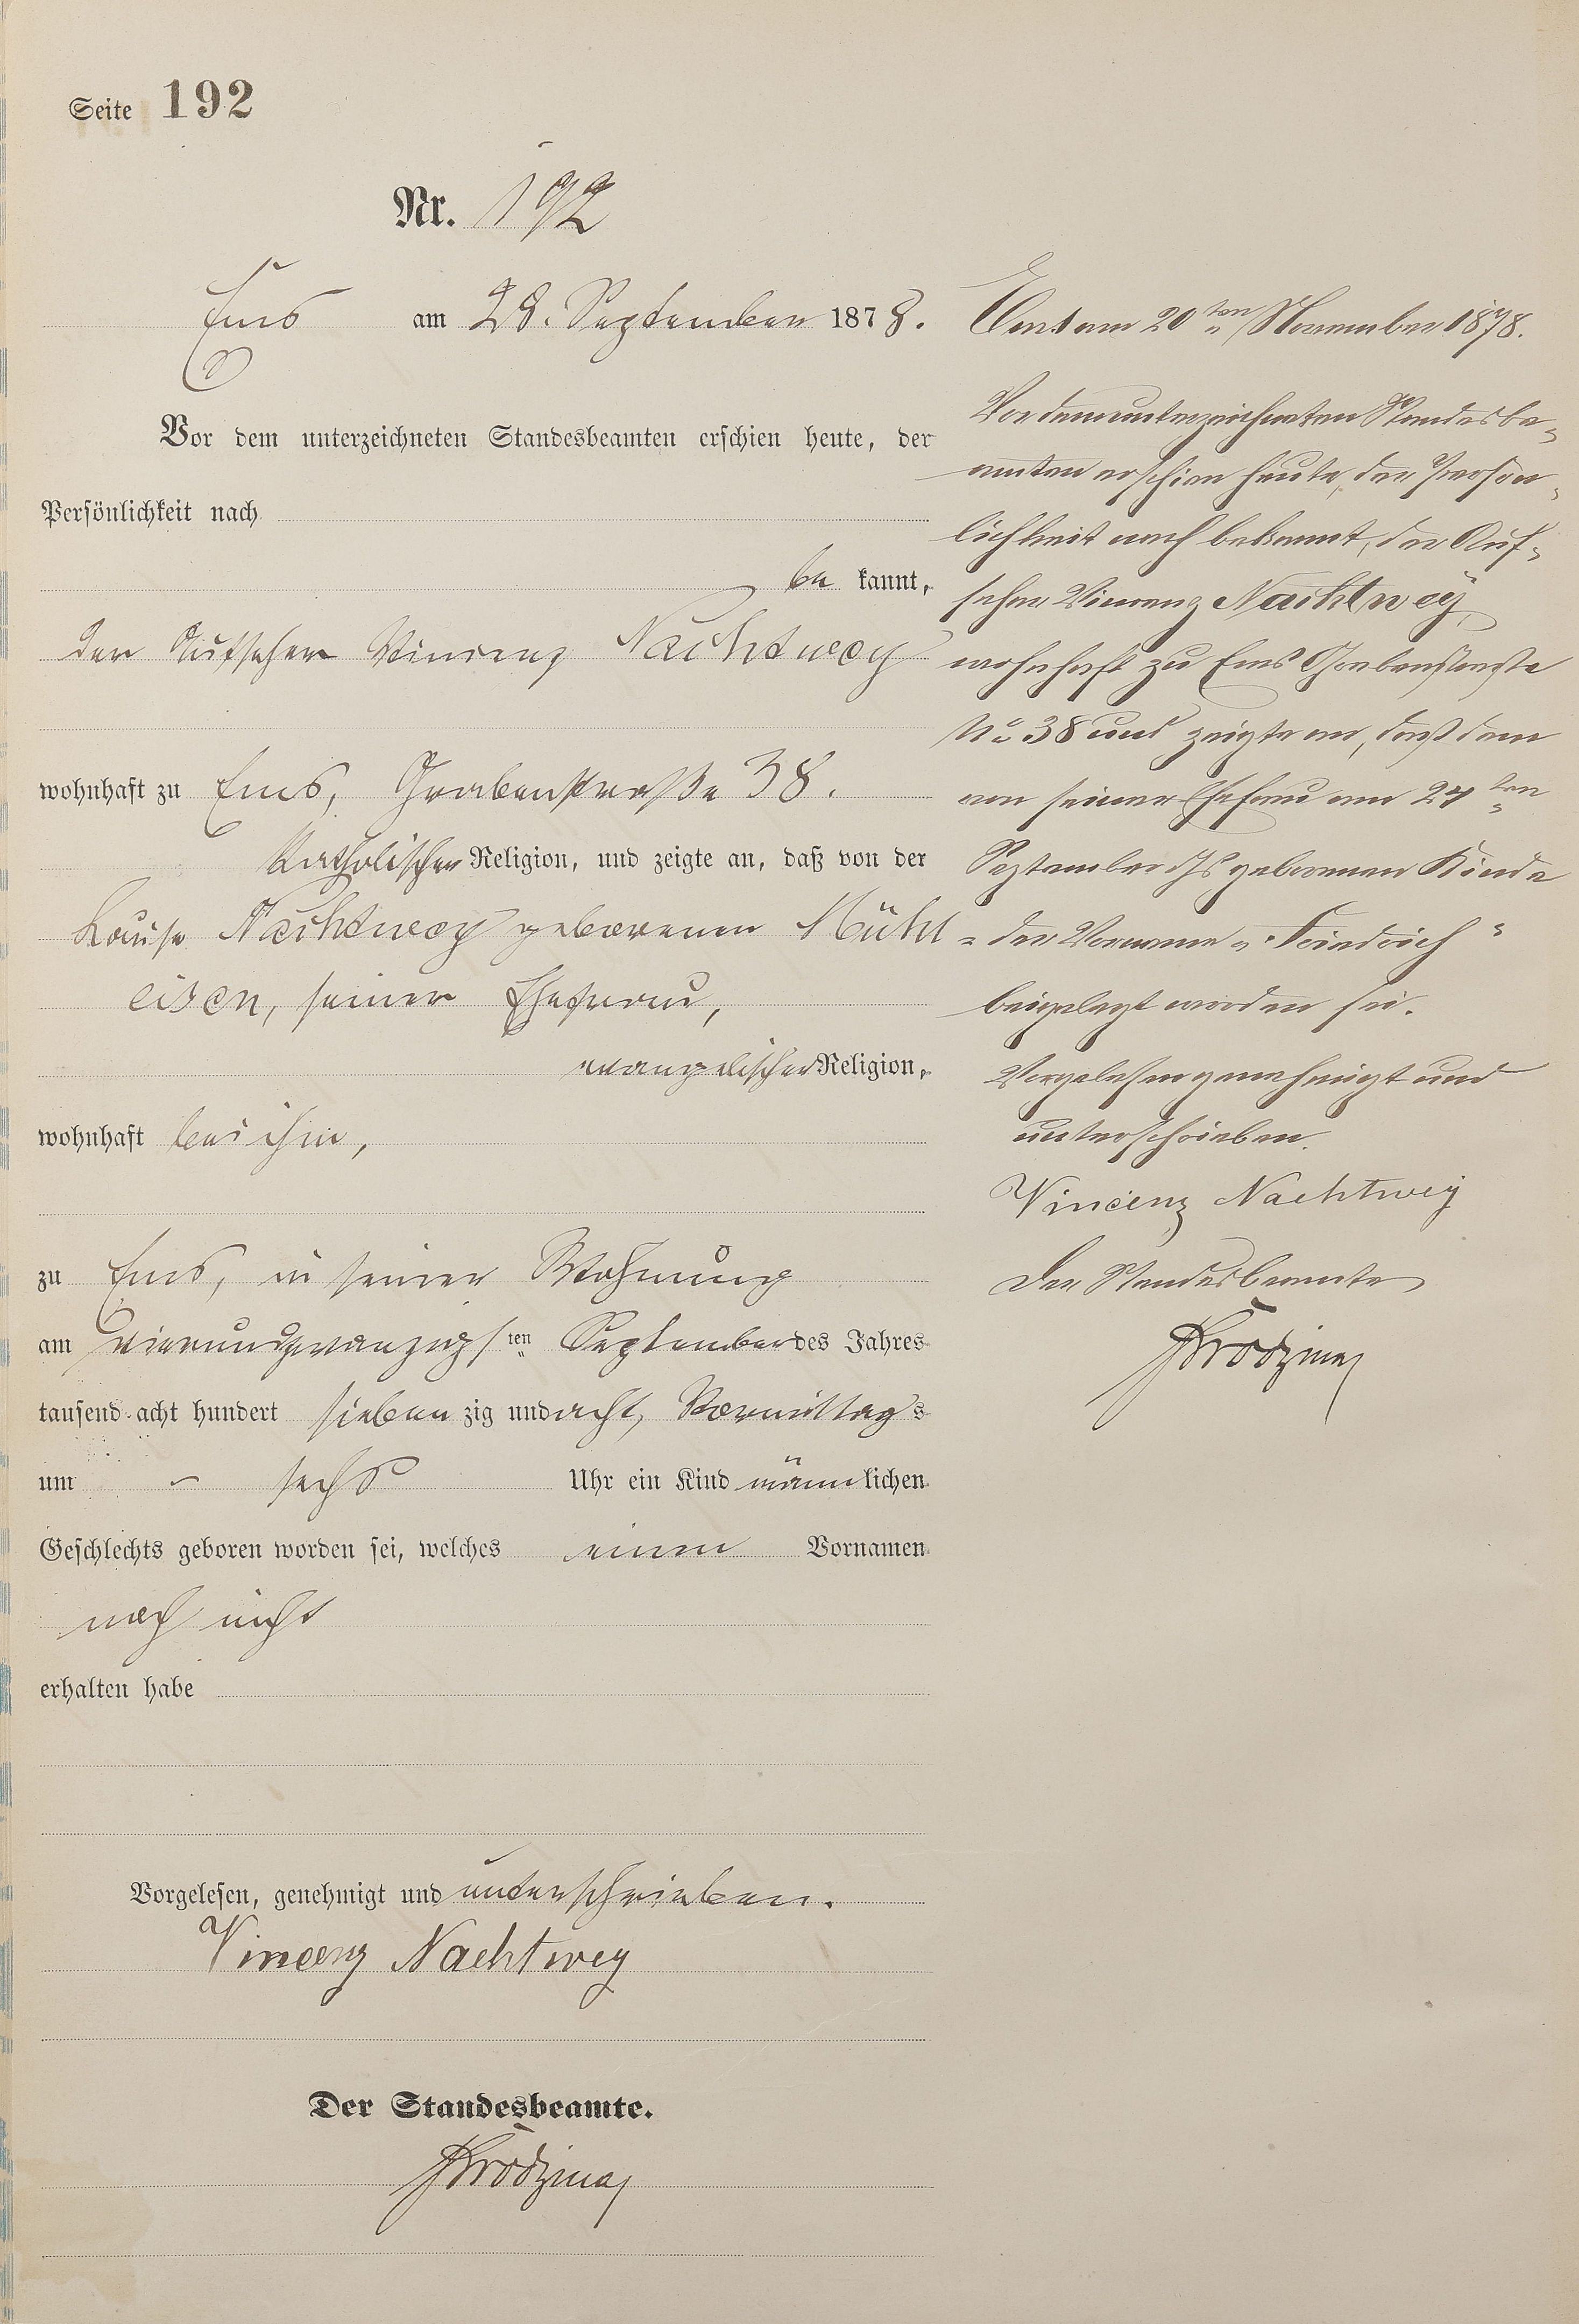 Seite 192
Nr. 192
Ems am 28. September 1878.
Vor dem unterzeichneten Standesbeamten erschien heute, der
Persönlichkeit nach
be kannt,
der Aufseher Vincenz Nachtwey
wohnhaft zu Ems, Grabenstraße 38.
katholischer Religion, und zeigte an, daß von der
Louise Nachtwey geborenen Mühl
eisen, seiner Ehefrau,
evangelischer Religion,
wohnhaft bei ihm,
zu Ems, in seiner Wohnung
am vierundzwanzigsten September des Jahres
tausend acht hundert sieben zig und acht, Vormittags
um sechs Uhr ein Kind männlichen
Geschlechts geboren worden sei, welches einen Vornamen
noch nicht
erhalten habe
Vorgelesen, genehmigt und unterschrieben.
Vincenz Nachtwey
Der Standesbeamte.
Ems am 20ten November 1878.
Vor dem unterzeichneten Standesbe-
amten erschien heute, der Persön-
lichkeit nach bekannt, der Auf-
seher Vincenz Nachtwey,
wohnhaft zu Ems Grabenstraße
No 38 und zeigte an, daß dem
von seiner Ehefrau am 24ten
September ds geborenen Kinde
der Vorname "Friedrich"
beigelegt worden sei.
Vorgelesen genehmigt und
unterschrieben.
Vincenz Nachtwey
Der Standesbeamte